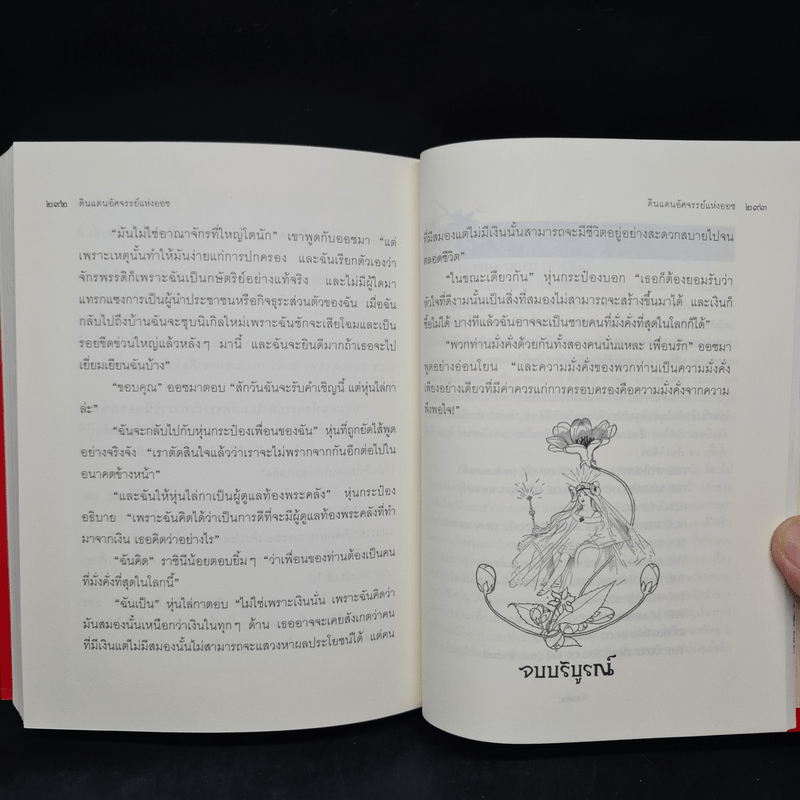 ๒๙๒ ดินแดนอัศจรรย์แห่งออซ
“มันไม่ใช่อาณาจักรที่ใหญ่โตนัก” เขาพูดกับออซมา “แต่
เพราะเหตุนั้นทำให้มันง่ายแก่การปกครอง และฉันเรียกตัวเองว่า
จักรพรรดิก็เพราะฉันเป็นกษัตริย์อย่างแท้จริง และไม่มีผู้ใดมา
แทรกแซงการเป็นผู้นำประชาชนหรือกิจธุระส่วนตัวของฉัน เมื่อฉัน
กลับไปถึงบ้านฉันจะชุบนิเกิลใหม่เพราะฉันชักจะเสียโฉมและเป็น
รอยขีดข่วนใหญ่แล้วหลังๆ มานี้ และฉันจะยินดีมากถ้าเธอจะไป
เยี่ยมเยียนฉันบ้าง”
“ขอบคุณ” ออซมาตอบ “สักวันฉันจะรับคำเชิญนี้ แต่หุ่นไล่กา
ล่ะ”
“ฉันจะกลับไปกับหุ่นกระป๋องเพื่อนของฉัน” หุ่นที่ถูกยัดไส้พูด
อย่างจริงจัง “เราตัดสินใจแล้วว่าเราจะไม่พรากจากกันอีกต่อไปใน
อนาคตข้างหน้า”
“และฉันให้หุ่นไล่กาเป็นผู้ดูแลท้องพระคลัง” หุ่นกระป๋อง
อธิบาย “เพราะฉันคิดได้ว่าเป็นการดีที่จะมีผู้ดูแลท้องพระคลังที่ทำ
มาจากเงิน เธอคิดว่าอย่างไร”
“ฉันคิด” ราชินีน้อยตอบยิ้มๆ “ว่าเพื่อนของท่านต้องเป็นคน
ที่มั่งคั่งที่สุดในโลกนี้”
“ฉันเป็น” หุ่นไล่กาตอบ “ไม่ใช่เพราะเงินนั่น เพราะฉันคิดว่า
มันสมองนั้นเหนือกว่าเงินในทุกๆ ด้าน เธออาจจะเคยสังเกตว่าคน
ที่มีเงินแต่ไม่มีสมองนั้นไม่สามารถจะแสวงหาผลประโยชน์ได้ แต่คน
ดินแดนอัศจรรย์แห่งออซ ๒๙๓
ที่มีสมองแต่ไม่มีเงินนั้นสามารถจะมีชีวิตอยู่อย่างสะดวกสบายไปจน
ตลอดชีวิต”
“ในขณะเดียวกัน” หุ่นกระป๋องบอก “เธอก็ต้องยอมรับว่า
หัวใจที่ดีงามนั้นเป็นสิ่งที่สมองไม่สามารถจะสร้างขึ้นมาได้ และเงินก็
ซื้อไม่ได้ บางทีแล้วฉันอาจจะเป็นชายคนที่มั่งคั่งที่สุดในโลกก็ได้”
“พวกท่านมั่งคั่งด้วยกันทั้งสองคนนั่นแหละ เพื่อนรัก” ออซมา
พูดอย่างอ่อนโยน “และความมั่งคั่งของพวกท่านเป็นความมั่งคั่ง
เพียงอย่างเดียวที่มีค่าควรแก่การครอบครองคือความมั่งคั่งจากความ
พึงพอใจ!”
จบบริบูรณ์